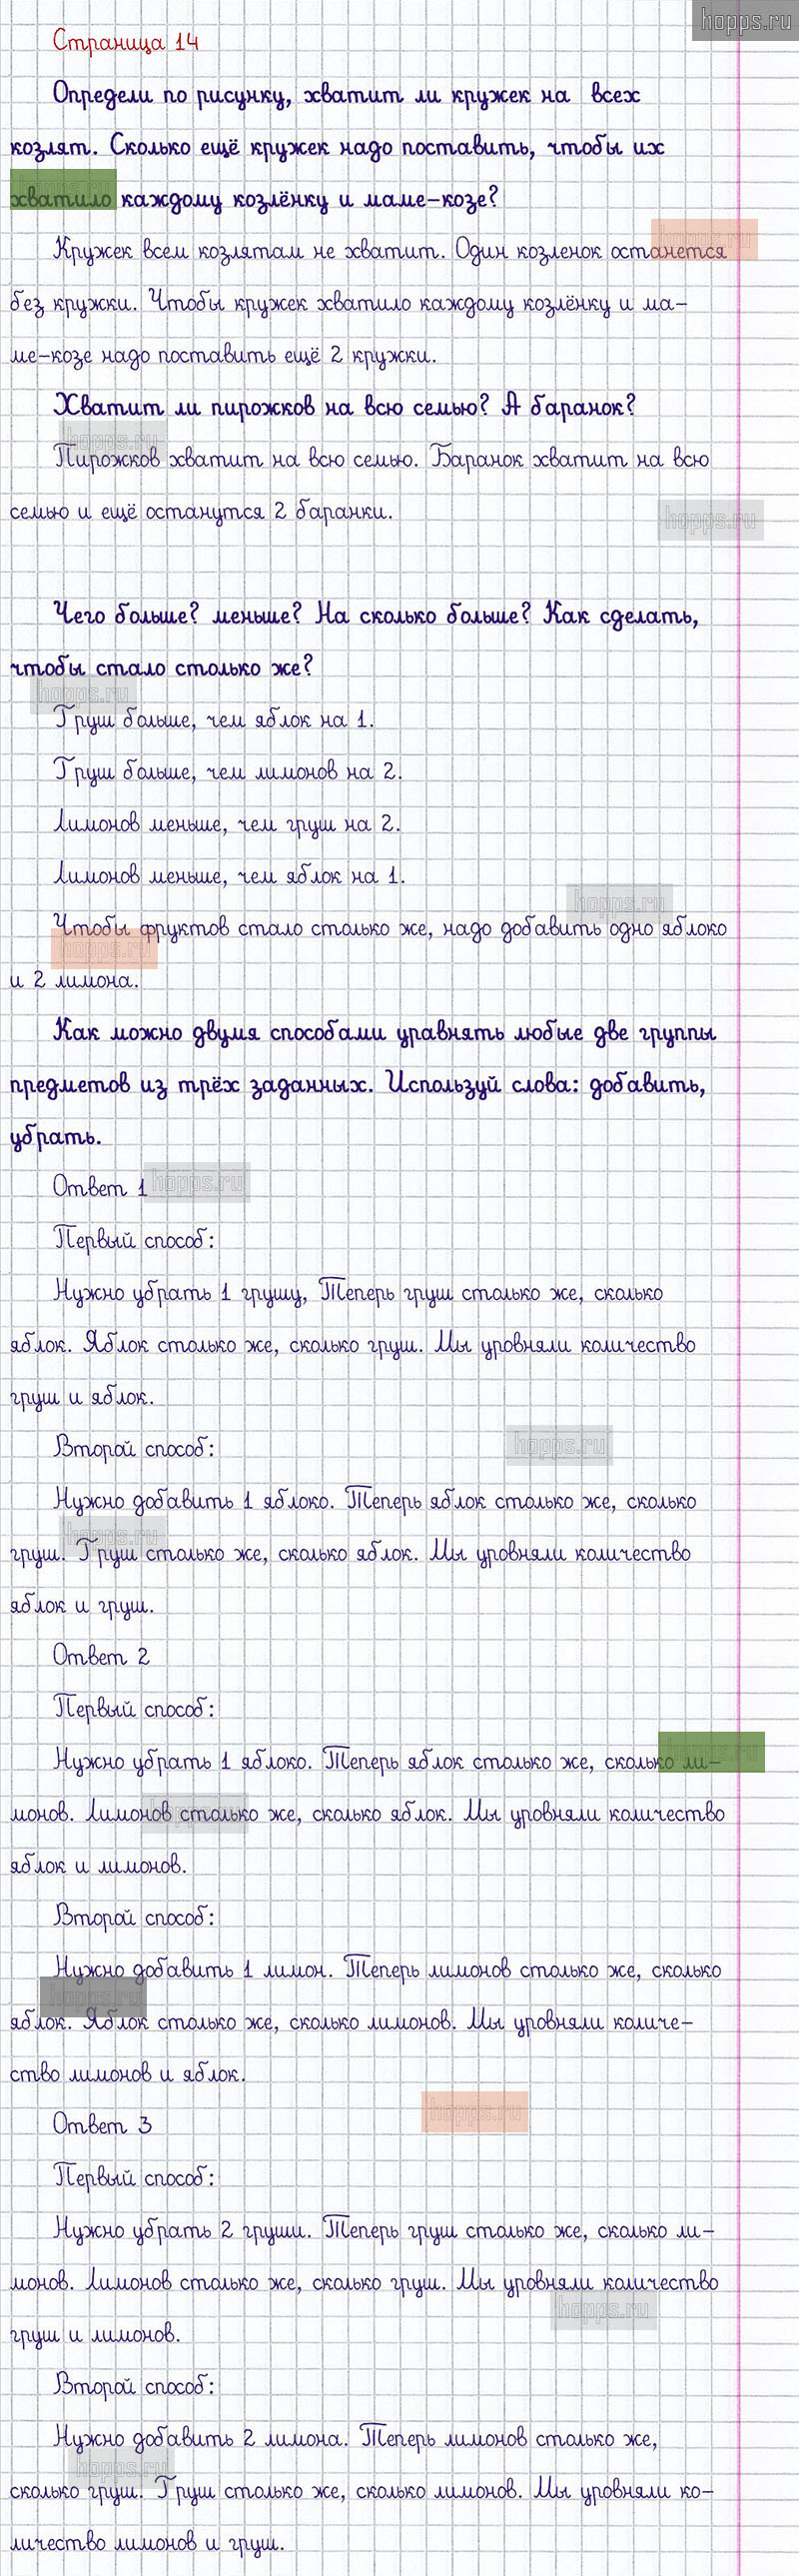 hopps.ru
Страница 14
Определи по рисунку, хватит ли кружек на всех
козлят. Сколько ещё кружек надо поставить, чтобы их
хватило каждому козлёнку и маме-козе?
Кружек всем козлятам не хватит. Один козленок останется
без кружки. Чтобы кружек хватило каждому козлёнку и ма-
ме-козе надо поставить ещё 2 кружки.
Хватит ли пирожков на всю семью? А баранок?
hopps.ru
Пирожков хватит на всю семью. Баранок хватит на всю
семью и ещё останутся 2 баранки.
hopps.ru
Чего больше? меньше? На сколько больше? Как сделать,
чтобы стало столько же?
hopps.ru
Груш больше, чем яблок на 1.
Груш больше, чем лимонов на 2.
Лимонов меньше, чем груш на 2.
Лимонов меньше, чем яблок на 1.
hopps.ru
Чтобы фруктов стало столько же, надо добавить одно яблоко
hopps.ru
и 2 лимона.
Как можно двумя способами уравнять любые две группы
предметов из трёх заданных. Используй слова: добавить,
убрать.
Ответ 1 hopps.ru
Первый способ:
Нужно убрать 1 грушу, Теперь груш столько же, сколько
яблок. Яблок столько же, сколько груш. Мы уровняли количество
груш и яблок.
Второй способ: hopps.ru
Нужно добавить 1 яблоко. Теперь яблок столько же, сколько
hopps.ru
груш. Груш столько же, сколько яблок. Мы уровняли количество
яблок и груш.
Ответ 2
Первый способ:
Нужно убрать 1 яблоко. Теперь яблок столько же, сколько ли-
монов. Лимонов столько же, сколько яблок. Мы уровняли количество
яблок и лимонов.
Второй способ:
Нужно добавить 1 лимон. Теперь лимонов столько же, сколько
hopps.ru
яблок. Яблок столько же, сколько лимонов. Мы уровняли количе-
ство лимонов и яблок.
hopps.ru
Ответ 3
Первый способ:
Нужно убрать 2 груши. Теперь груш столько же, сколько ли-
монов. Лимонов столько же, сколько груш. Мы уровняли количество
hopps.ru
груш и лимонов.
Второй способ:
Нужно добавить 2 лимона. Теперь лимонов столько же,
hopps.ru
сколько груш. Груш столько же, сколько лимонов. Мы уровняли ко-
личество лимонов и груш.